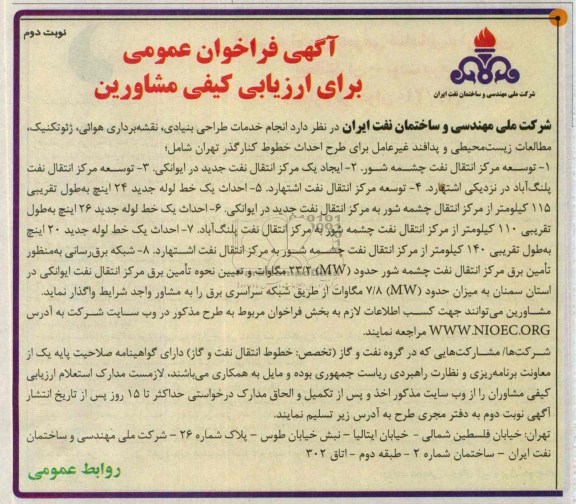 نوبت دوم
آگهی فراخوان عمومی
برای ارزیابی کیفی مشاورین
شرکت ملی مهندسی و ساختمان نفت ایران
شرکت ملی مهندسی و ساختمان نفت ایران در نظر دارد انجام خدمات طراحی بنیادی، نقشه‌برداری هوائی، ژئوتکنیک،
مطالعات زیست‌محیطی و پدافند غیرعامل برای طرح احداث خطوط کنارگذر تهران شامل؛
۱- توسعه مرکز انتقال نفت چشمه شور. ۲- ایجاد یک مرکز انتقال نفت جدید در ایوانکی. ۳- توسعه مرکز انتقال نفت
پلنگ‌آباد در نزدیکی اشتهارد. ۴- توسعه مرکز انتقال نفت اشتهارد. ۵- احداث یک خط لوله جدید ۲۴ اینچ به‌طول تقریبی
۱۱۵ کیلومتر از مرکز انتقال چشمه شور به مرکز انتقال نفت جدید در ایوانکی. ۶- احداث یک خط لوله جدید ۲۶ اینچ به‌طول
تقریبی ۱۱۰ کیلومتر از مرکز انتقال نفت چشمه شور به مرکز انتقال نفت پلنگ‌آباد. ۷- احداث یک خط لوله جدید ۲۰ اینچ
به‌طول تقریبی ۱۴۰ کیلومتر از مرکز انتقال نفت چشمه شور به مرکز انتقال نفت اشتهارد. ۸- شبکه برق‌رسانی به‌منظور
تأمین برق مرکز انتقال نفت چشمه شور حدود (MW) ۲۳/۲ مگاوات و تعیین نحوه تأمین برق مرکز انتقال نفت ایوانکی در
استان سمنان به میزان حدود (MW) ۷/۸ مگاوات از طریق شبکه سراسری برق را به مشاور واجد شرایط واگذار نماید.
مشاورین می‌توانند جهت کسب اطلاعات لازم به بخش فراخوان مربوط به طرح مذکور در وب سایت شرکت به آدرس
WWW.NIOEC.ORG مراجعه نمایند.
شرکت‌ها/ مشارکت‌هایی که در گروه نفت و گاز (تخصص: خطوط انتقال نفت و گاز) دارای گواهینامه صلاحیت پایه یک از
معاونت برنامه‌ریزی و نظارت راهبردی ریاست جمهوری بوده و مایل به همکاری می‌باشند، لازمست مدارک استعلام ارزیابی
کیفی مشاوران را از وب سایت مذکور اخذ و پس از تکمیل و الحاق مدارک درخواستی حداکثر تا ۱۵ روز پس از تاریخ انتشار
آگهی نوبت دوم به دفتر مجری طرح به آدرس زیر تسلیم نمایند.
تهران: خیابان فلسطین شمالی - خیابان ایتالیا – نبش خیابان طوس – پلاک شماره ۲۶ – شرکت ملی مهندسی و ساختمان
نفت ایران – ساختمان شماره ۲ – طبقه دوم – اتاق ۳۰۲
روابط عمومی